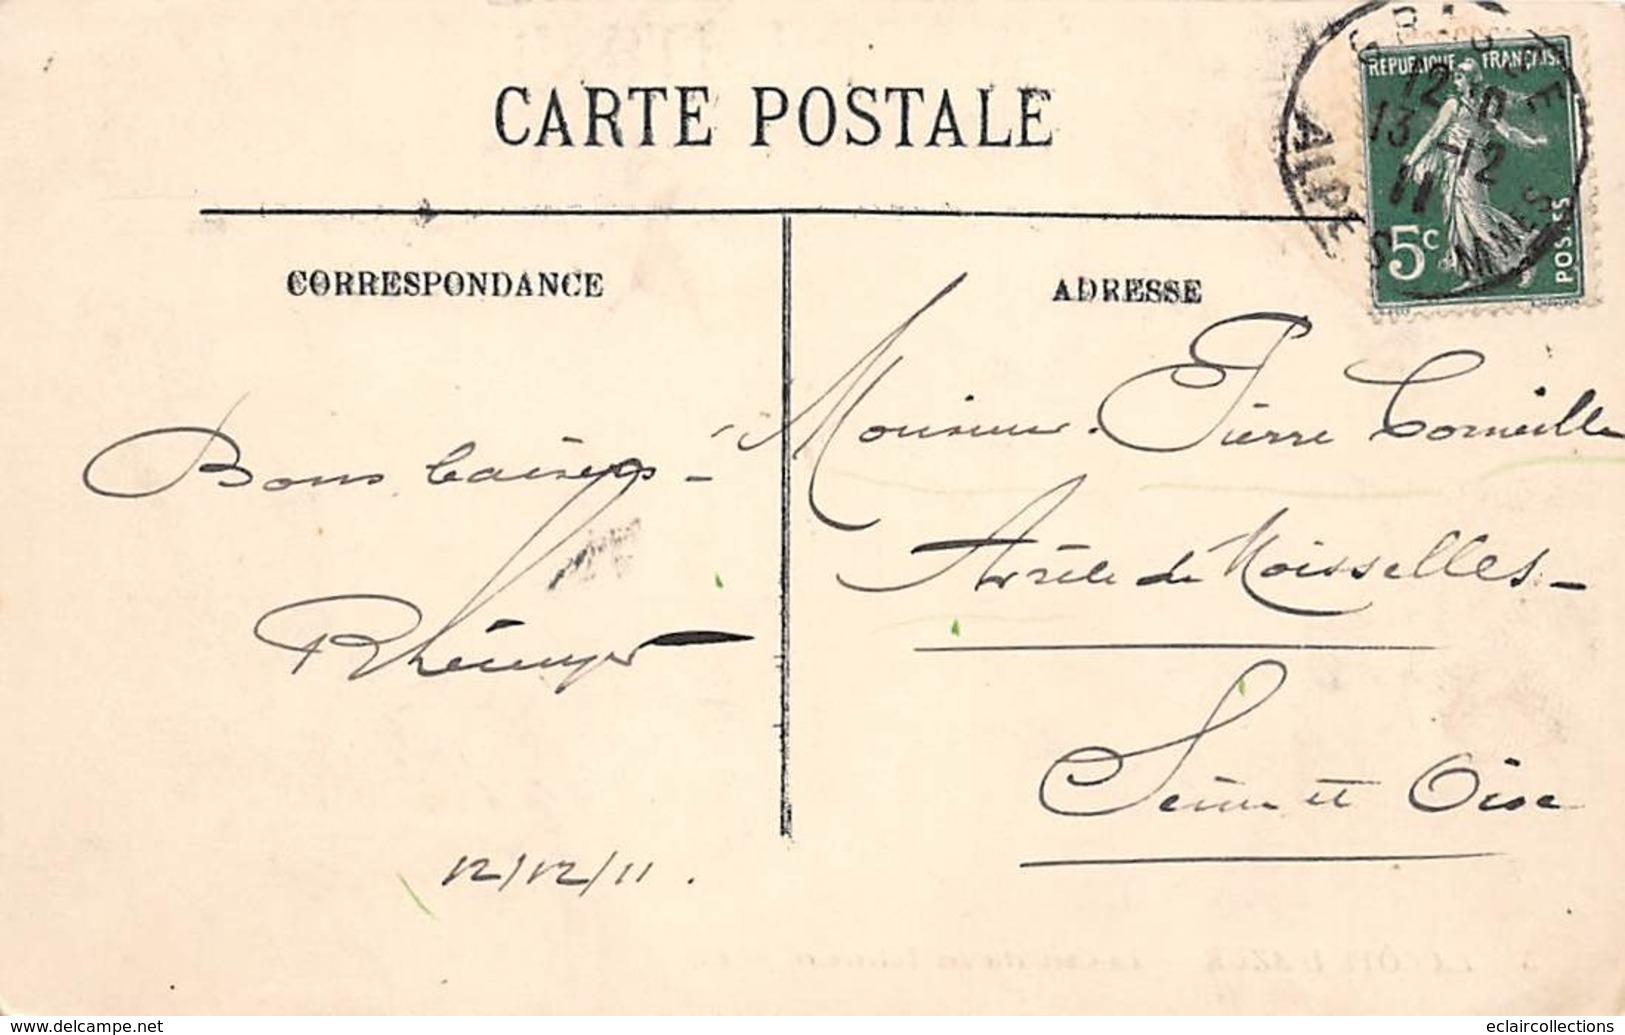 CARTE POSTALE
GRASSE
12
13 -12
11
ALPES MMES
REPUBLIQUE FRANÇAISE
5c
POSTES
CORRESPONDANCE
Bons baisers -
12/12/11.
ADRESSE
Monsieur Pierre Corneille
Arrêt de Moisselles -
Seine et Oise
www.delcampe.net
eclaircollections